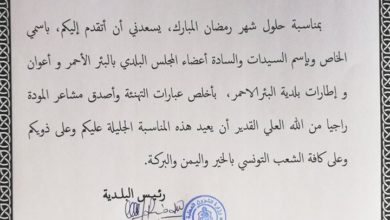 بمناسبة حلول شهر رمضان المبارك، يسعدني أن أتقدم إليكم، باسمي
الخاص وبإسم السيدات والسادة أعضاء المجلس البلدي بالبئر الأحمر و أعوان
و إطارات بلدية البئر الاحمر، بأخلص عبارات التهنئة وأصدق مشاعر المودة
راجيا من الله العلي القدير أن يعيد هذه المناسبة الجليلة عليكم وعلى ذويكم
وعلى كافة الشعب التونسي بالخير واليمن والبركة.
رئيس البلدية